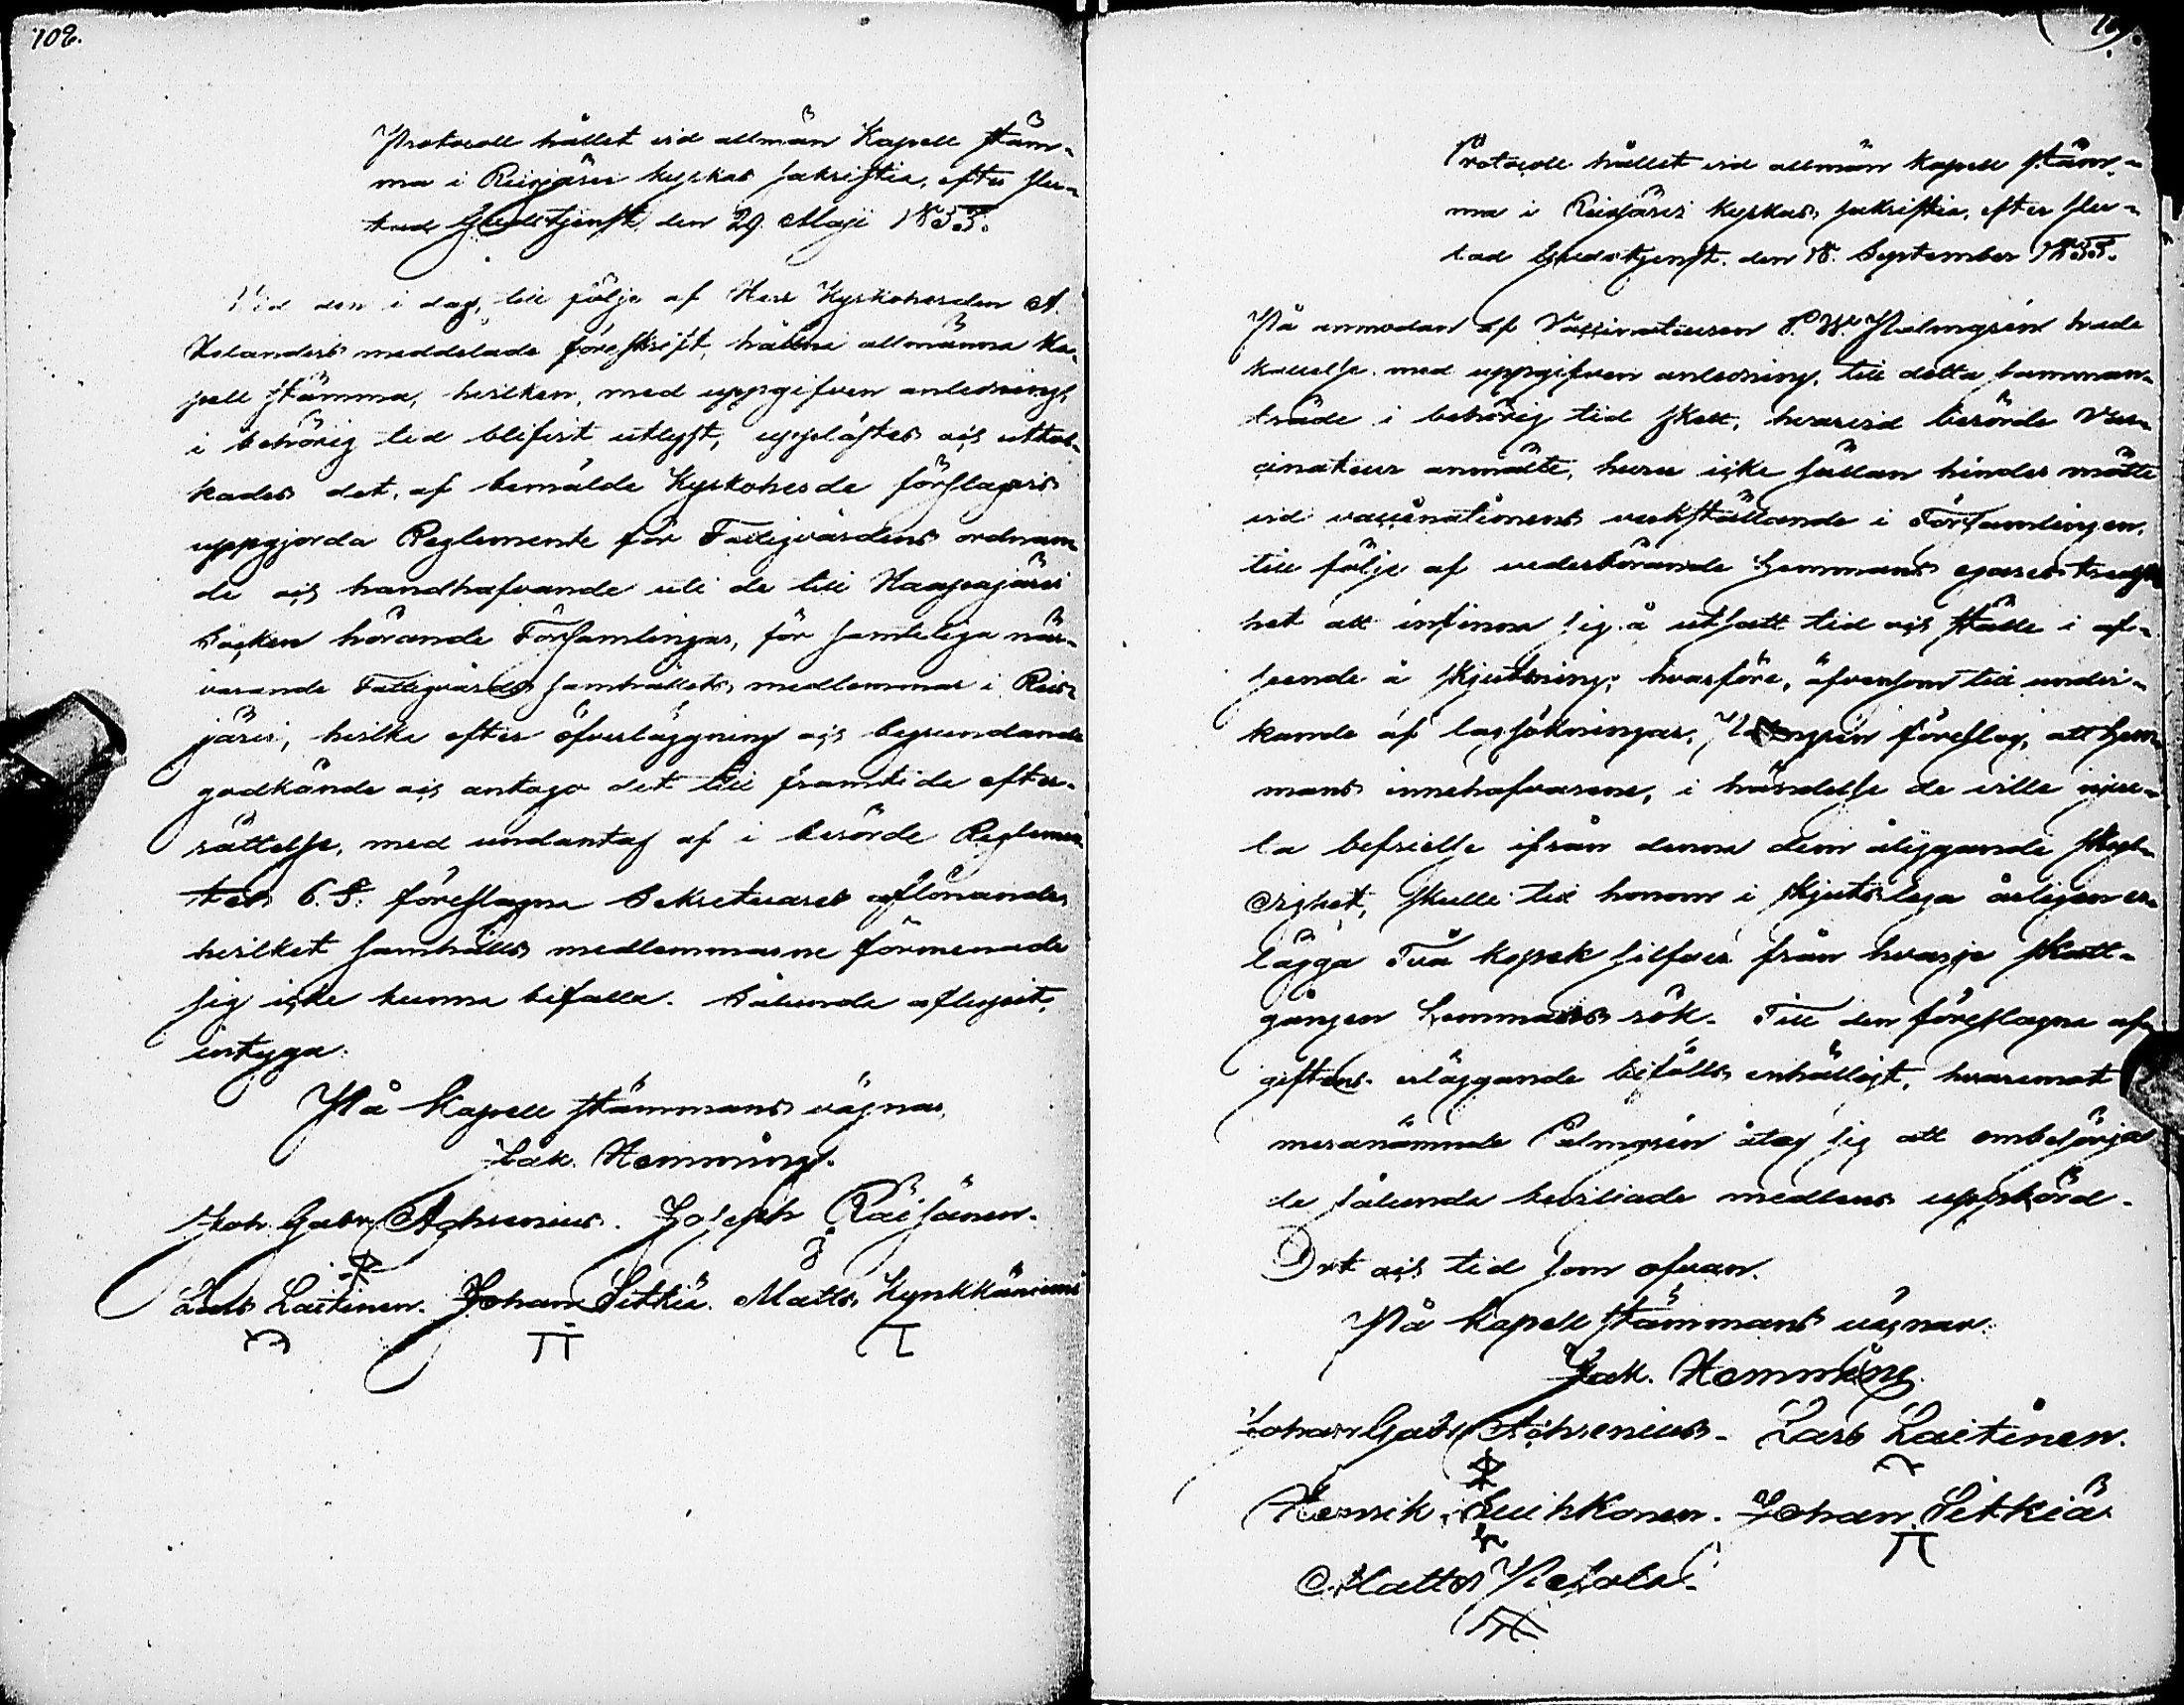 108.
Protocoll hållet vid allmän Kapell stäm-
ma i Reisjärvi kyrkas sakristia, efter slu-
tad Gudstjenst, den 29. Maji 1833.
Vid den i dag, till följe af Herr Kyrkoherden A.
Helanders meddelade föreskrift, hållne allmänna Ka-
pell stämma, hvilken, med uppgifven anledning,
i behörig tid blifvit utlyst, upplästes och uttol-
kades det, af bemälde Kyrkoherde förslagsvis
uppgjorda Reglemente för Fattigvårdens ordnan-
de och handhafvande uti de till Haapajärvi
Socken hörande Församlingar, för samteliga när-
varande Fattigvårds samhällets medlemmar i Reis-
järvi, hvilke efter öfverläggning och begrundande
godkände och antogo det till framtida efter-
rättelse, med undantag af i berörde Reglemen-
tes 6. §. föreslagne Sekreterares aflönande,
hvilket samhälls medlemmarne förmenade
sig icke kunna bifalla. Sålunda aflupit,
intyga.
På Kapell stämmans vägnar,
Jak. Hemming.
Joh. Gabr. Achrenius. Joseph Räisänen.
Lars Laitinen. Johan Sitkiä. Matts Kynkkäniemi
Protocoll hållet vid allmän kapell stäm-
ma i Reisjärvi kyrkas sakristia, efter slu-
tad Gudstjenst, den 18. September 1833.
På anmodan af Vaccinateuren P. W. Palmgrén hade
kallelse med uppgifven anledning, till detta samman-
träde i behörig tid skett, hvarvid berörde Vac-
cinateur anmälte, huru icke sällan hinder mötte
vid vaccinationens verkställande i Församlingen,
till följe af vederbörande hemmans egares tredsk-
het att infinna sig å utsatt tid och ställe i af-
seende å skjutsning; hvarföre, äfvensom till undvi-
kande af lagsökningar, Palmgrén föreslog, att hem-
mans innehafvarene, i händelse de ville njuta
befrielse ifrån denna dem åliggande skyl-
dighet, skulle till honom i skjutslega årligen er-
lägga Två kopek silfver från hvarje skatt-
gången hemmans rök. Till den föreslagne af-
giftens erläggande bifölls enhälligt, hvaremot
meranämnde Palmgrén åtog sig att ombesörja
de sålunda beviljade medlens uppbörd.
Ort och tid som ofvan.
På Kapell stämmans vägnar:
Jak. Hemming
Johan Gabr. Achrenius. Lars Laitinen.
Henrik Puihkonen. Johan Sitkiä
Matts